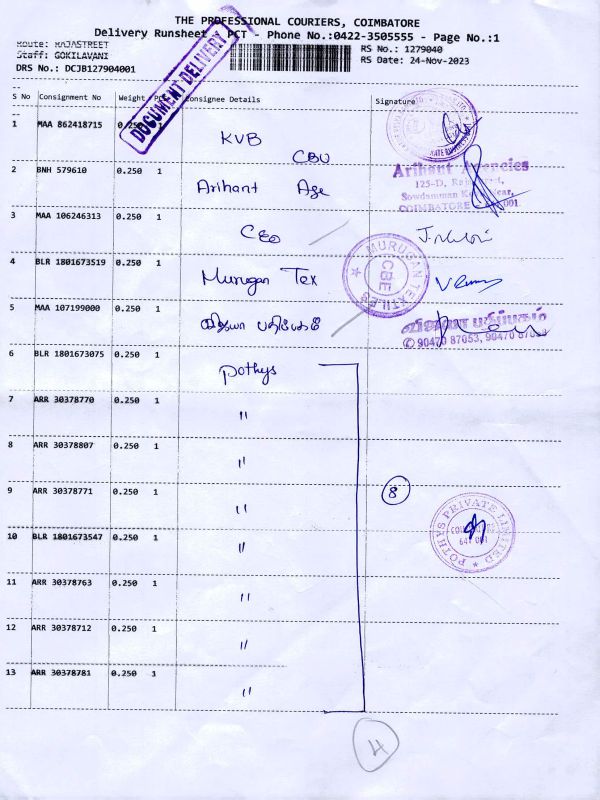 THE PROFESSIONAL COURIERS, COIMBATORE
Delivery Runsheet - PCT - Phone No.:0422-3505555 - Page No.:1
Route: RAJASTREET
Staff: GOKILAVANI
DRS No.: DCJB127904001
RS No.: 1279040
RS Date: 24-Nov-2023
DOCUMENT DELIVERY
S No Consignment No Weight Pcs Consignee Details Signature
1 MAA 862418715 0.250 1 KVB
CBU
2 BNH 579610 0.250 1 Arihant Age
Arihant Agencies
125-D,
Sowdamman
COIMBATORE
3 MAA 106246313 0.250 1 CEO
4 BLR 1801673519 0.250 1 Murugan Tex
MURUGAN TEXTILES
CBE
5 MAA 107199000 0.250 1 விஜயா பதிப்பகம்
விஜயா பதிப்பகம்
90470 87053, 90470
6 BLR 1801673075 0.250 1 pothys
7 ARR 30378770 0.250 1 "
8 ARR 30378807 0.250 1 "
9 ARR 30378771 0.250 1 "
8
10 BLR 1801673547 0.250 1 "
POTHYS PRIVATE LIMITED
11 ARR 30378763 0.250 1 "
12 ARR 30378712 0.250 1 "
13 ARR 30378781 0.250 1 "
4